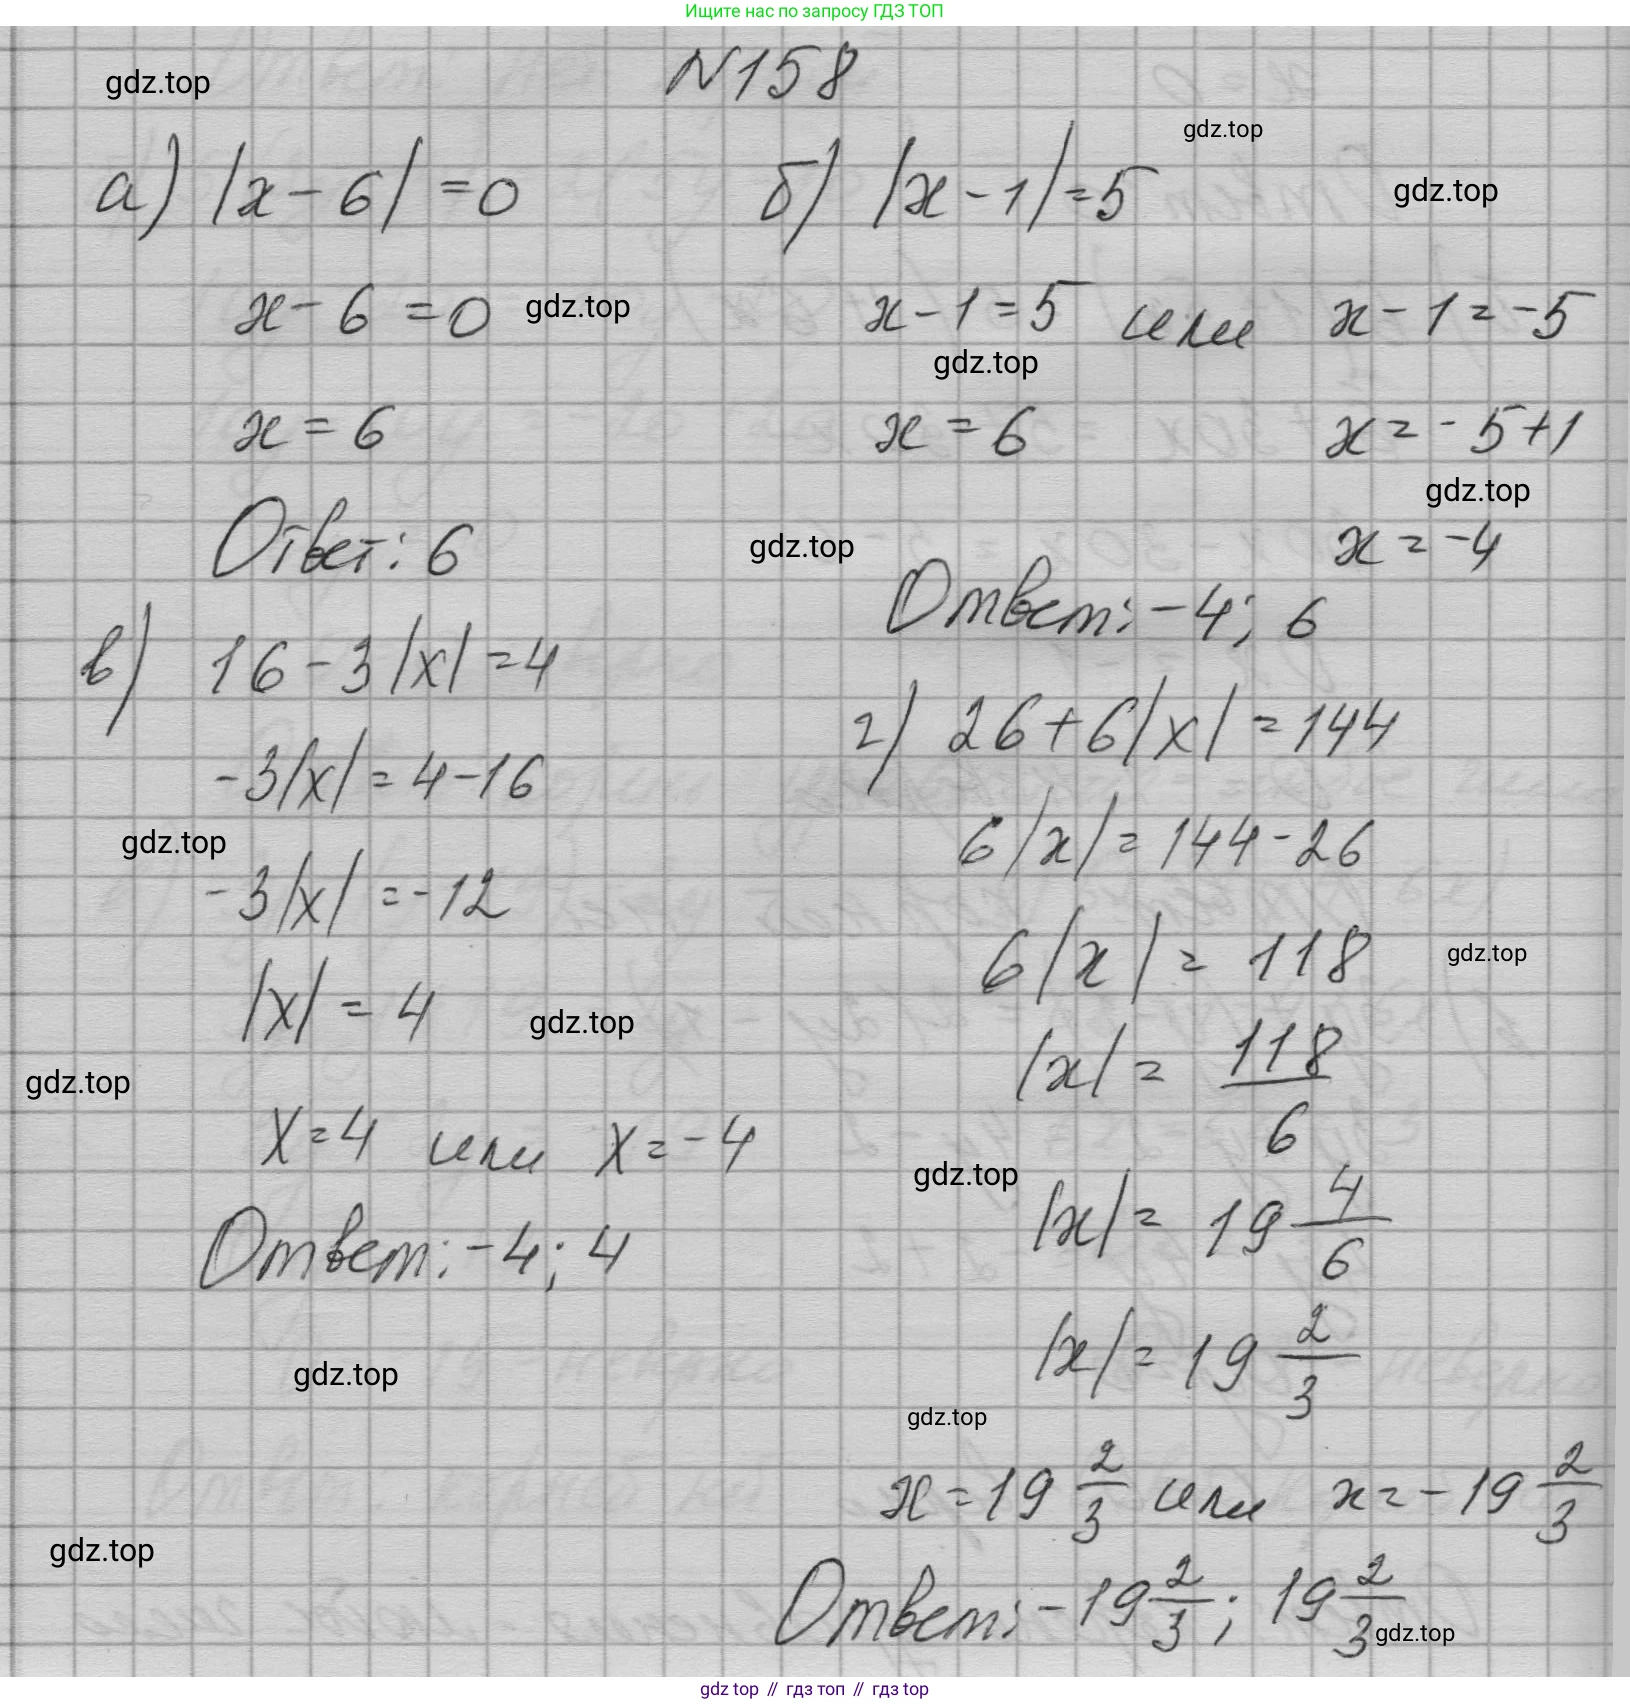 Ищите нас по запросу ГДЗ ТОП
№158
gdz.top
gdz.top
а) |x - 6| = 0
x - 6 = 0
gdz.top
x = 6
Ответ: 6
б) |x - 1| = 5
gdz.top
x - 1 = 5 или x - 1 = -5
gdz.top
x = 6 x = -5 + 1
gdz.top
x = -4
gdz.top
Ответ: -4; 6
в) 16 - 3|x| = 4
-3|x| = 4 - 16
gdz.top
-3|x| = -12
|x| = 4
gdz.top
gdz.top
x = 4 или x = -4
Ответ: -4; 4
gdz.top
gdz.top
г) 26 + 6|x| = 144
6|x| = 144 - 26
6|x| = 118
gdz.top
|x| = 118/6
gdz.top
|x| = 19 4/6
|x| = 19 2/3
gdz.top
x = 19 2/3 или x = -19 2/3
Ответ: -19 2/3; 19 2/3
gdz.top
gdz top // гдз топ // gdz top